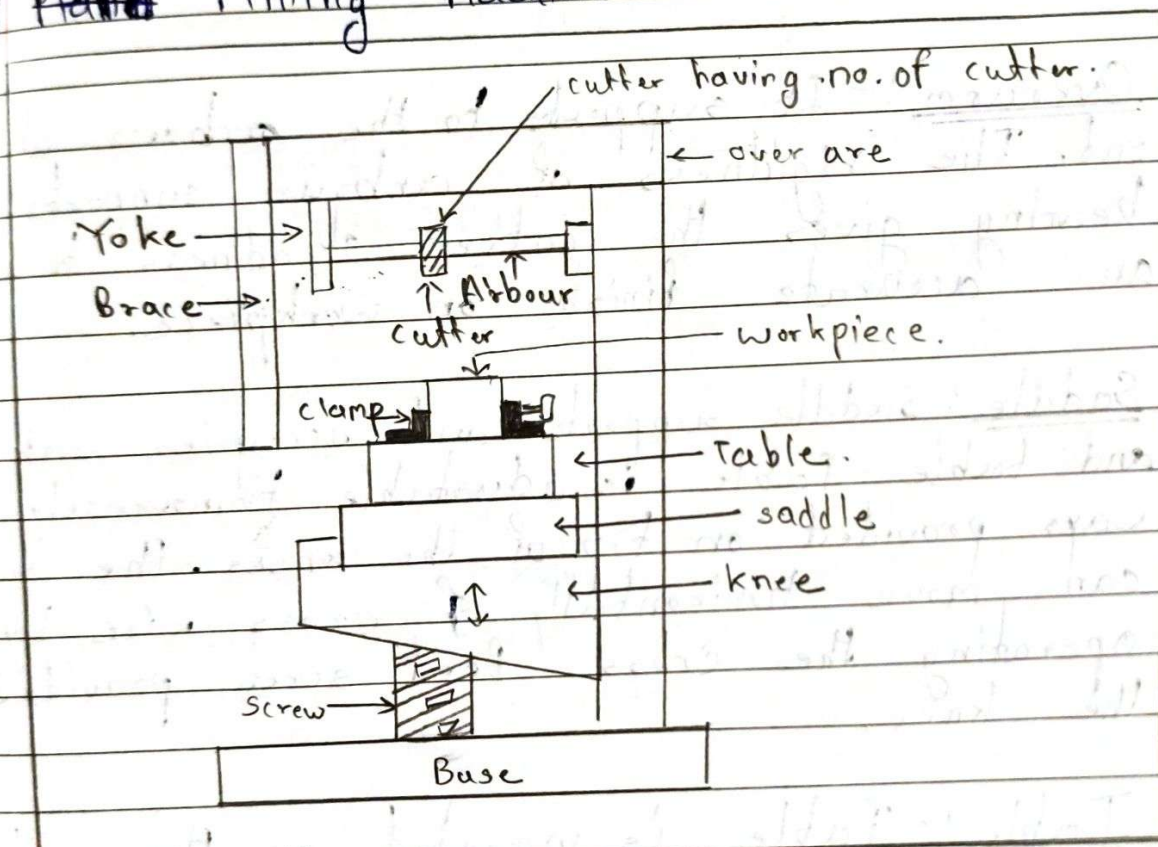 Milling
cutter having no. of cutter.
over are
Yoke
Brace
Arbour
cutter
workpiece.
clamp
Table.
saddle
knee
Screw
Base